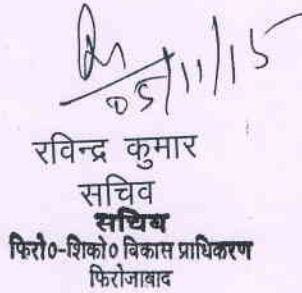 05/11/15
रविन्द्र कुमार
सचिव
सचिव
फिरो०-शिको० विकास प्राधिकरण
फिरोजाबाद